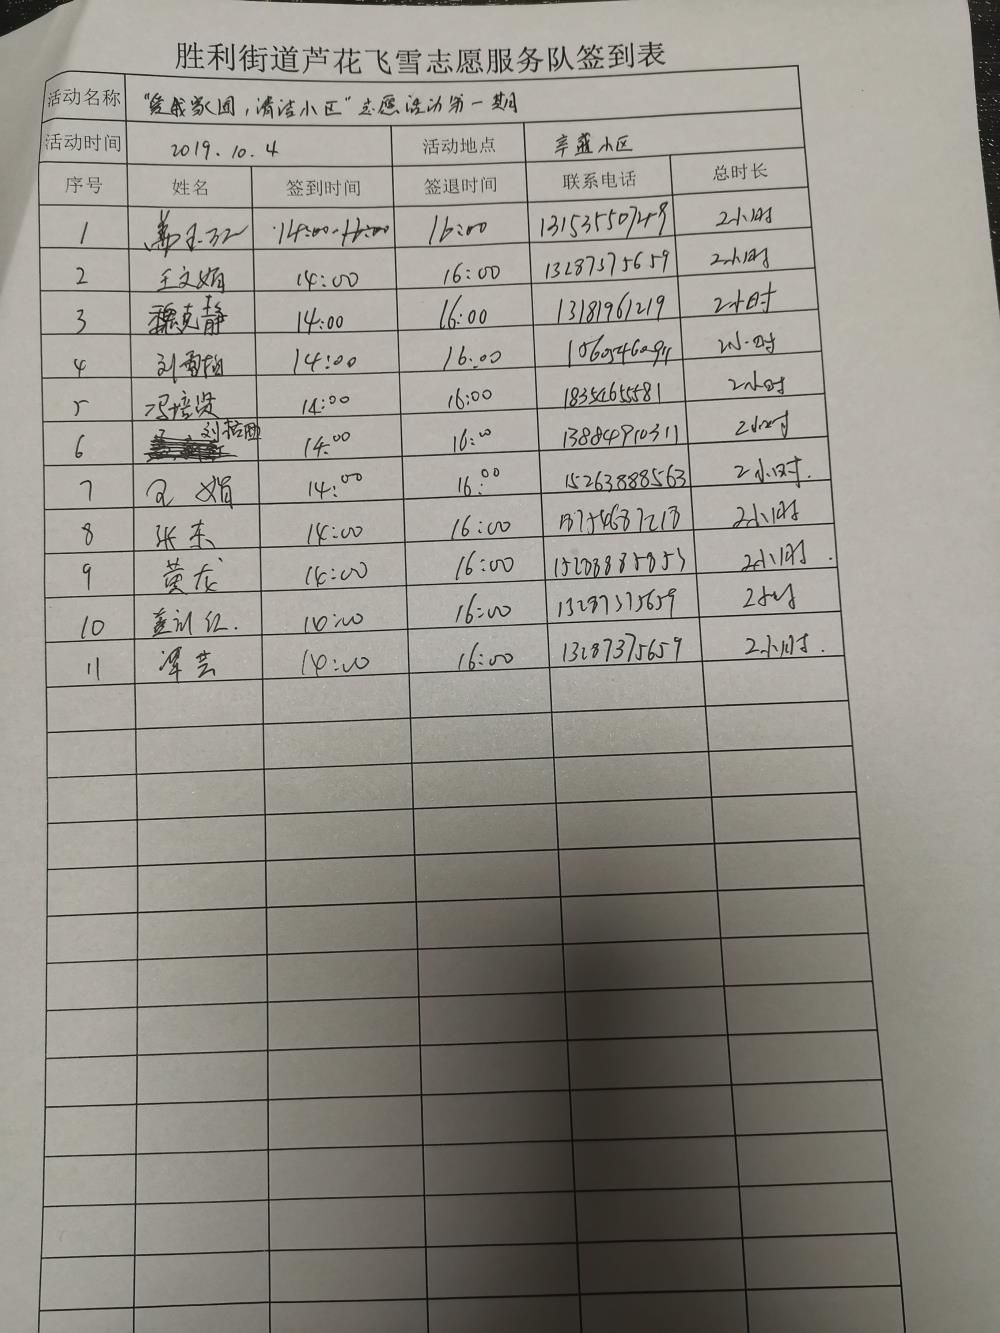 胜利街道芦花飞雪志愿服务队签到表
活动名称 “爱我家园,清洁小区”志愿活动第一期
活动时间 2019.10.4 活动地点 辛盛小区
序号 姓名 签到时间 签退时间 联系电话 总时长
1 14:00 16:00 13153550749 2小时
2 王文娟 14:00 16:00 13287375659 2小时
3 魏克静 14:00 16:00 13181961219 2小时
4 14:00 16:00 2小时
5 冯培贤 14:00 16:00 18354655581 2小时
6 14:00 16:00 13884910311 2小时
7 娟 14:00 16:00 15263888563 2小时.
8 张东 14:00 16:00 2小时
9 黄龙 14:00 16:00 2小时.
10 14:00 16:00 13287375659 2小时
11 14:00 16:00 13287375659 2小时.